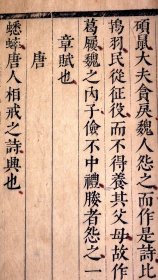 碩鼠大夫貪戾魏人怨之而作是詩比
鴇羽民從征役而不得養其父母故作
葛屨魏之內子儉不中禮媵者怨之一
章賦也
唐
蟋蟀唐人相戒之詩興也